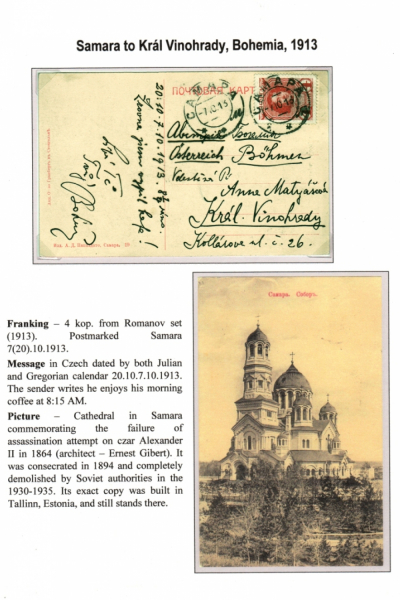 Samara to Král Vinohrady, Bohemia, 1913
ПОЧТОВАЯ КАРТ
САМАРА
-7.10.13
САМАРА
20.10-7.10.1913
Österreich Böhmen
Anně
Král. Vinohrady
Kollárova ul. č. 26.
Самара. Соборъ.
Franking – 4 kop. from Romanov set
(1913). Postmarked Samara
7(20).10.1913.
Message in Czech dated by both Julian
and Gregorian calendar 20.10.7.10.1913.
The sender writes he enjoys his morning
coffee at 8:15 AM.
Picture – Cathedral in Samara
commemorating the failure of
assassination attempt on czar Alexander
II in 1864 (architect – Ernest Gibert). It
was consecrated in 1894 and completely
demolished by Soviet authorities in the
1930-1935. Its exact copy was built in
Tallinn, Estonia, and still stands there.